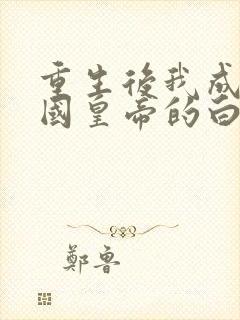 重生後我成
國皇帝的白
鄭魯